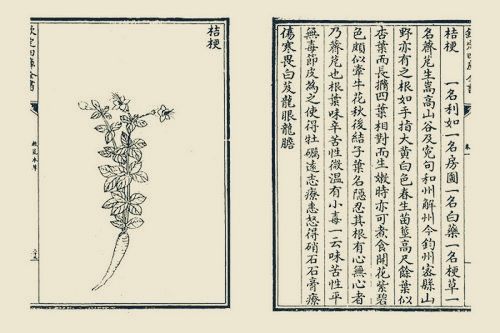 桔梗 一名利如一名房圖一名白藥一名梗草一
名薺苨生嵩高山谷及寃句和州解州今鈞州密縣山
野亦有之根如手指大黄白色春生苗莖高尺餘葉似
杏葉而長橢四葉相對而生嫩時亦可煮食開花紫碧
色頗似牽牛花秋後結子葉名隱忍其根有心無心者
乃薺苨也根葉味辛苦性微温有小毒一云味苦性平
無毒節皮為之使得牡礪逺志療恚怒得硝石石膏療
傷寒畏白芨龍眼龍膽
桔梗
欽定四庫全書
救荒本草